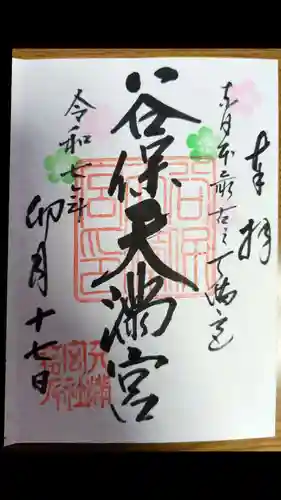 奉拝
東日本最古之天満宮
谷保天満宮
令和七年
卯月十七日